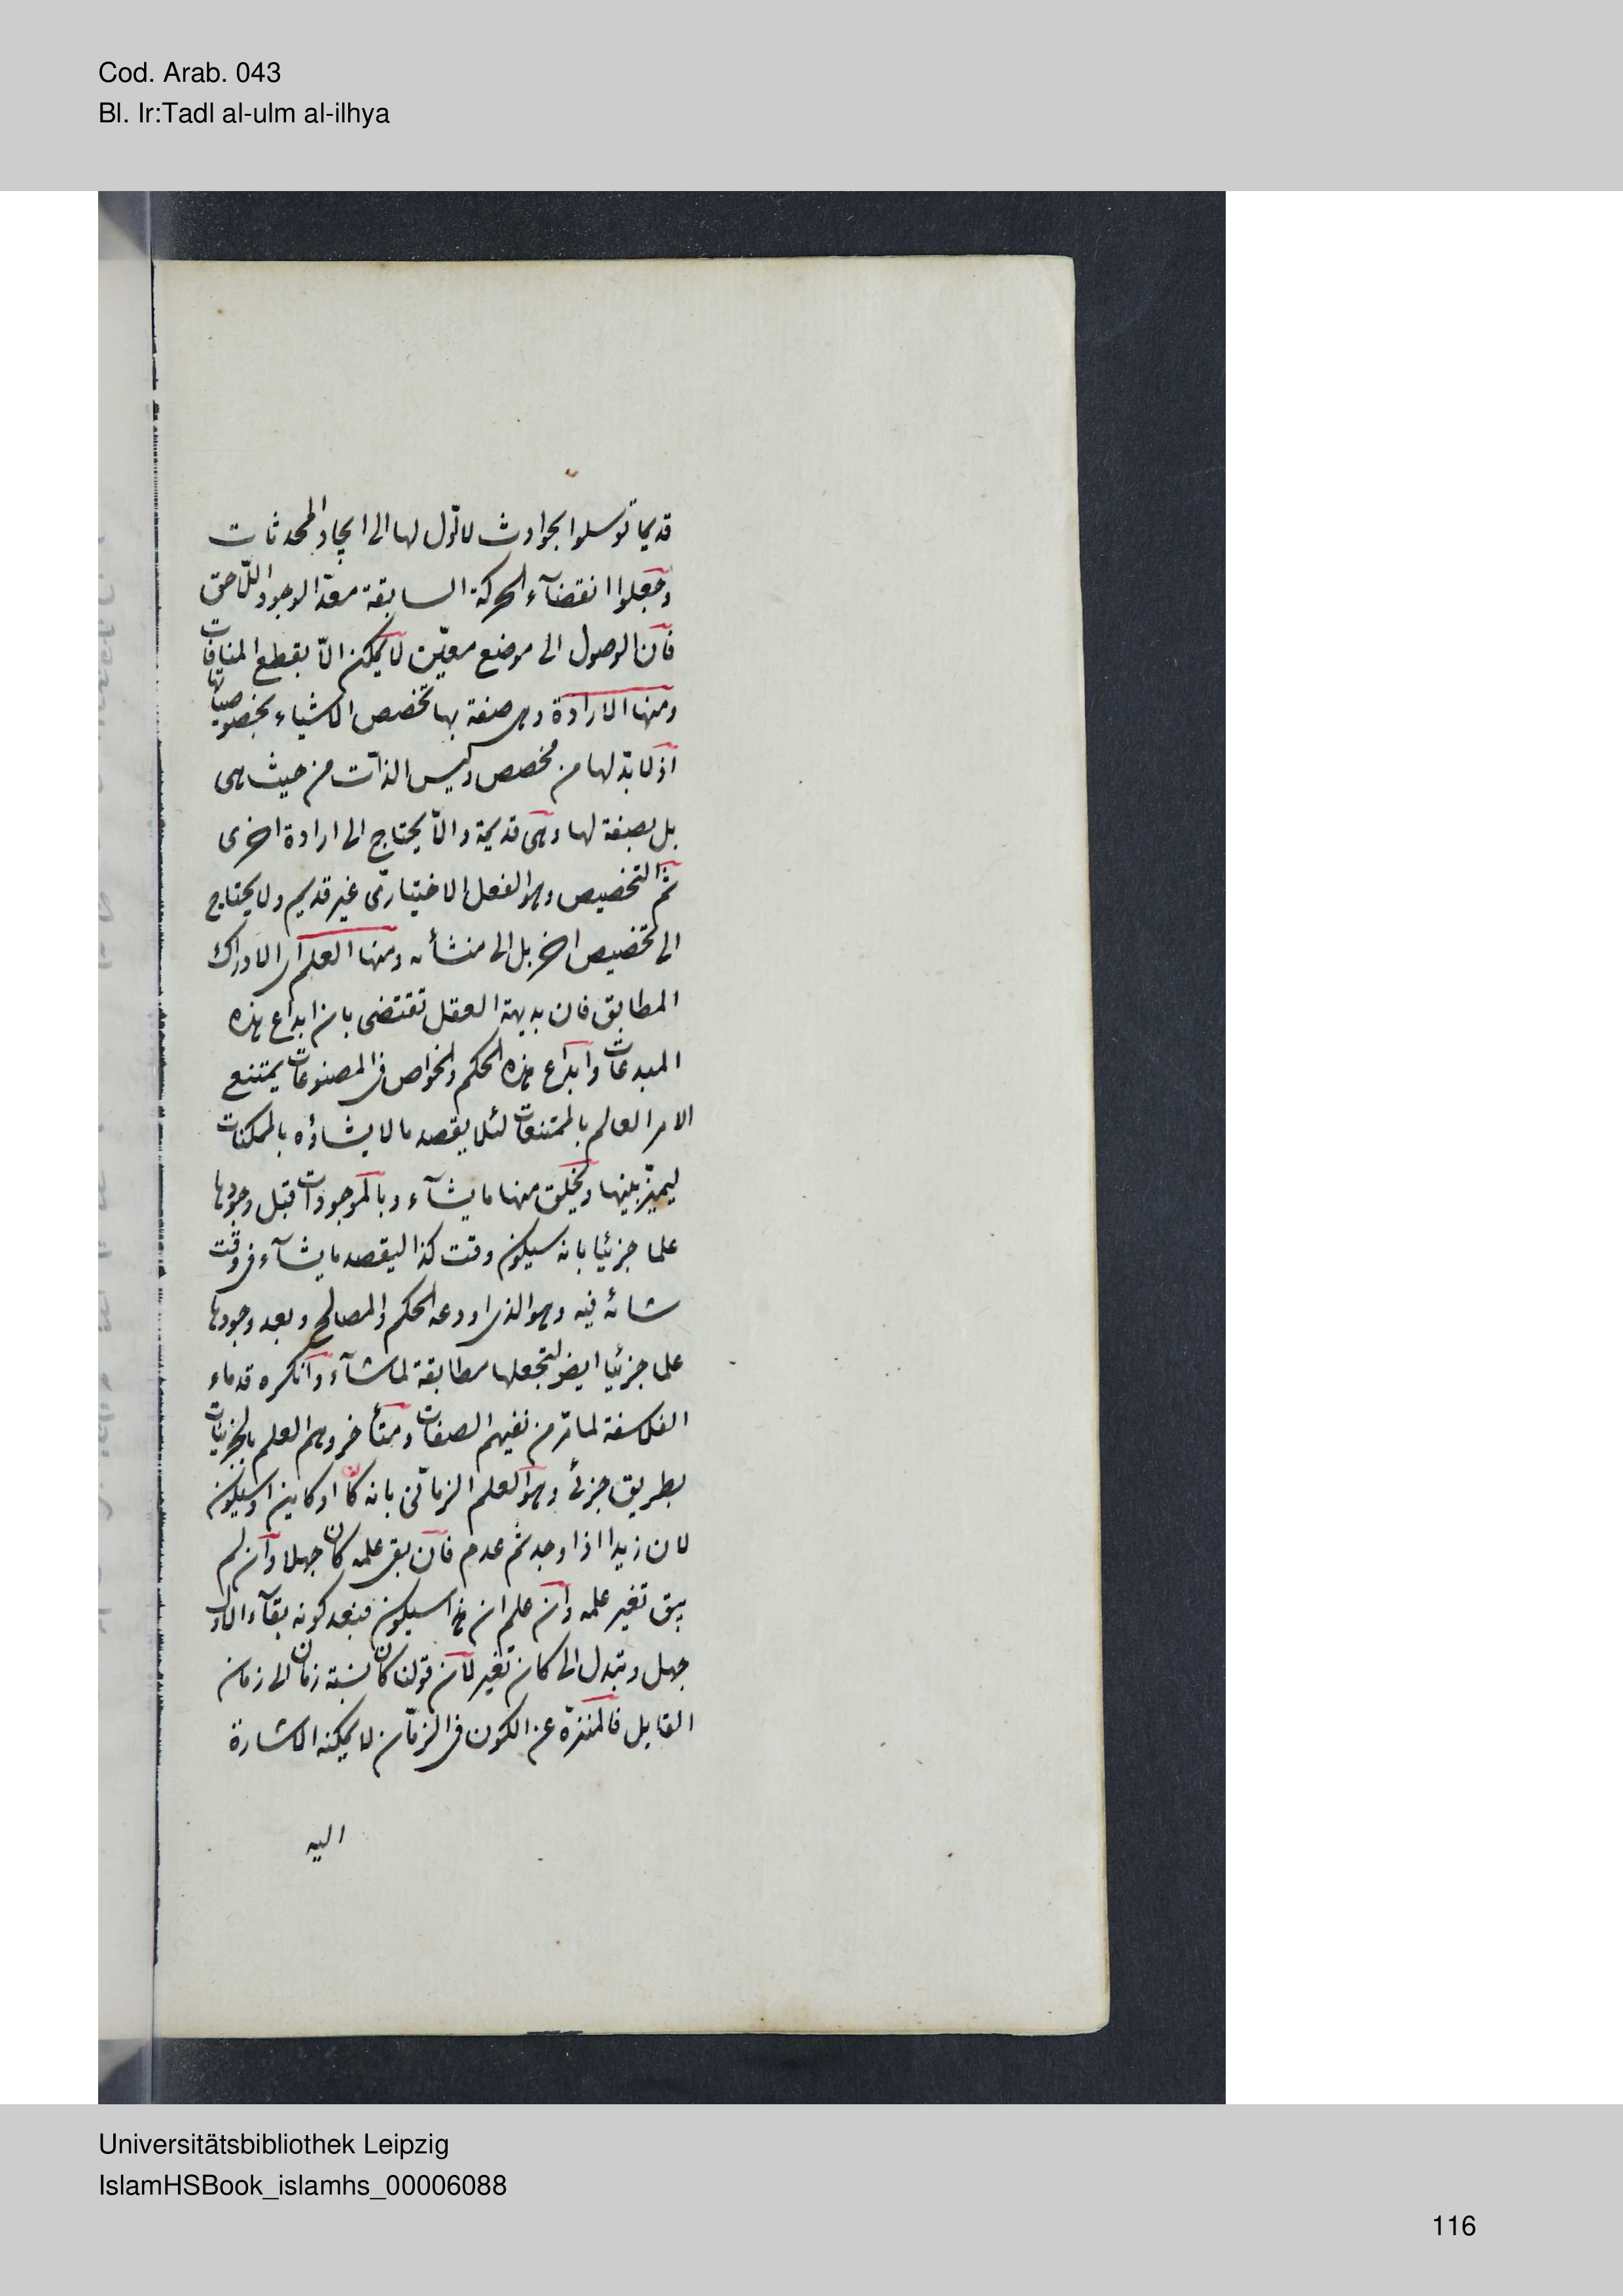 Cod. Arab. 043
Bl. Ir:Tadl al-ulm al-ilhya
قديما توسلوا بحوادث لا اول لها الى ايجاد المحدثات
وجعلوا انقضآء الحركة السابقة معدّا لوجود اللّاحق
فان الوصول الى موضع معيّن لا يمكن الّا بقطع المنافات
ومنها الارادة وهى صفة بها تخصص الاشياء بخصوصياتها
اذ لا بدّ لها من مخصص وليس الذات من حيث هى
بل بصفة لها وهى قديمة والّا يحتاج الى ارادة اخرى
ثم التخصيص وهو الفعل الاختيارىّ غير قديم ولا يحتاج
الى تخصيص اخر بل الى منشأه ومنها العلم اى الادراك
المطابق فان بديهة العقل تقتضى بان ابداع هذه
المبدعات وابداع هذه الحكم والخواص فى المصنوعات يمتنع
الا من العالم بالممتنعات لئلا يقصد ما لا يشاؤه بالممكنات
ليميّز بينها ويخلق منها ما يشآء وبالموجودات قبل وجودها
علما جزئيا بانه سيكون وقت كذا ليقصد ما يشآء فى وقت
شائه فيه وهو الذى اودعه الحكم والمصالح وبعد وجودها
علما جزئيا ايضا لتجعلها مطابقة لما شآء وانكره قدماء
الفلاسفة لما مرّ من نفيهم الصفات ومتأخروهم العلم بالجزئيات
بطريق جزئى وهو العلم الزمانّى بانه كان او كاين او سيكون
لان زيدا اذا وجد ثم عدم فان بقى علمه كان جهلا وان لم
يبق تغير علمه وان علم ان هذا سيكون فبعد كونه بقآء الاول
جهل وتبدل الى كان تغير لان قولنا كان نسبة زمان الى زمان
القايل فالمنزّه عن الكون فى الزمان لا يمكنه الاشارة
اليه
Universitätsbibliothek Leipzig
IslamHSBook_islamhs_00006088
116